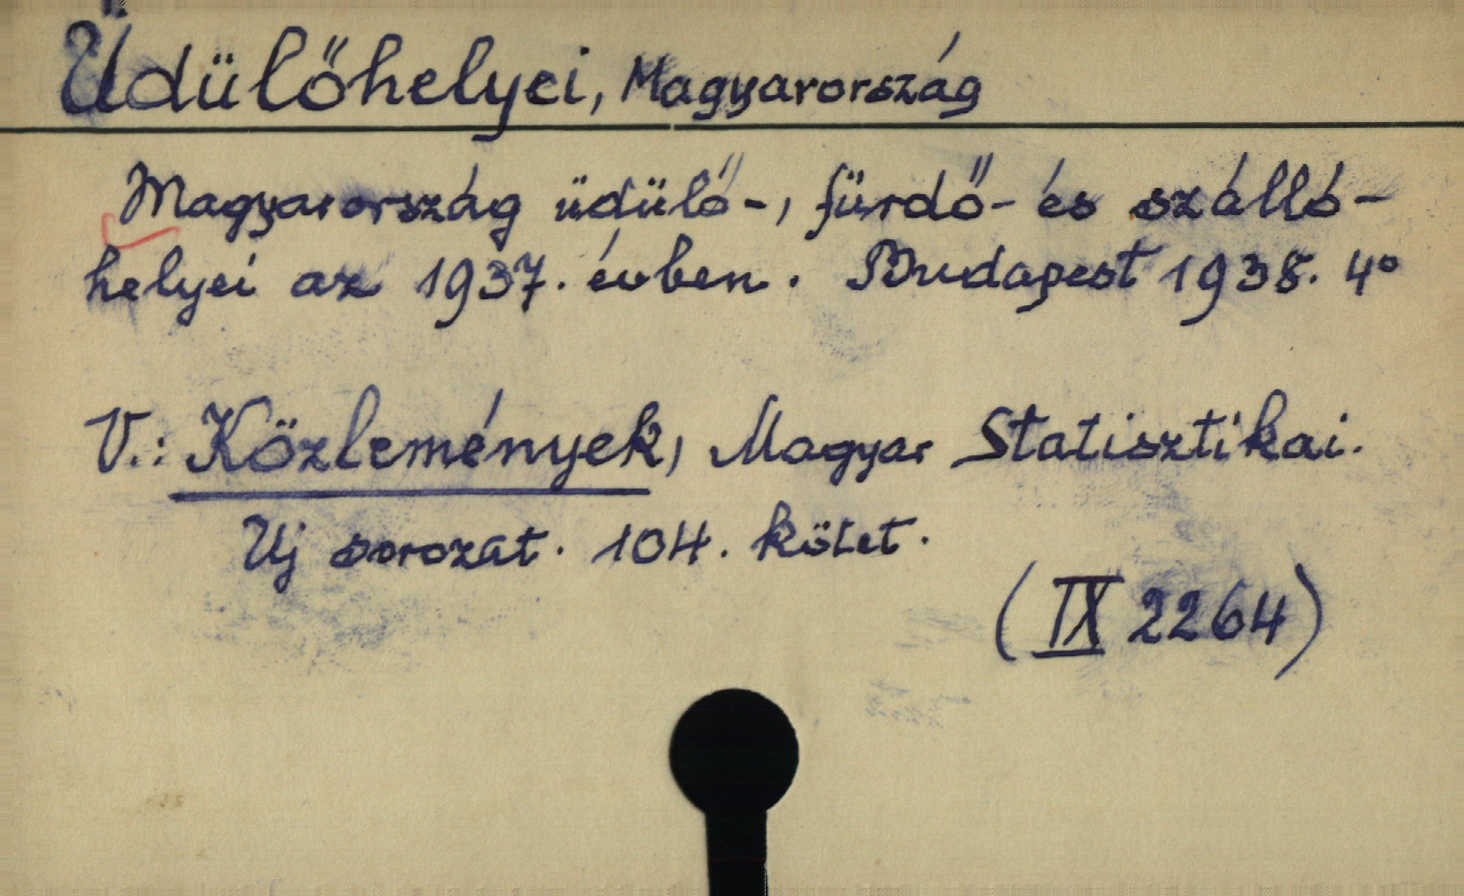 Üdülőhelyei, Magyarország
Magyarország üdülő-, fürdő- és szálló-
helyei az 1937. évben. Budapest 1938. 4°
V.: Közlemények, Magyar Statisztikai.
Uj sorozat. 104. kötet.
(IX 2264)